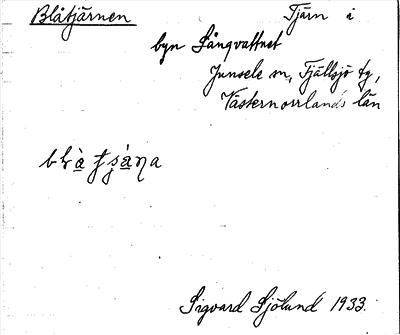 Blåtjärnen Tjärn i
byn Långvattnet
Junsele sn, Fjällsjö tg,
Västernorrlands län
Sigvard Sjölund 1933.